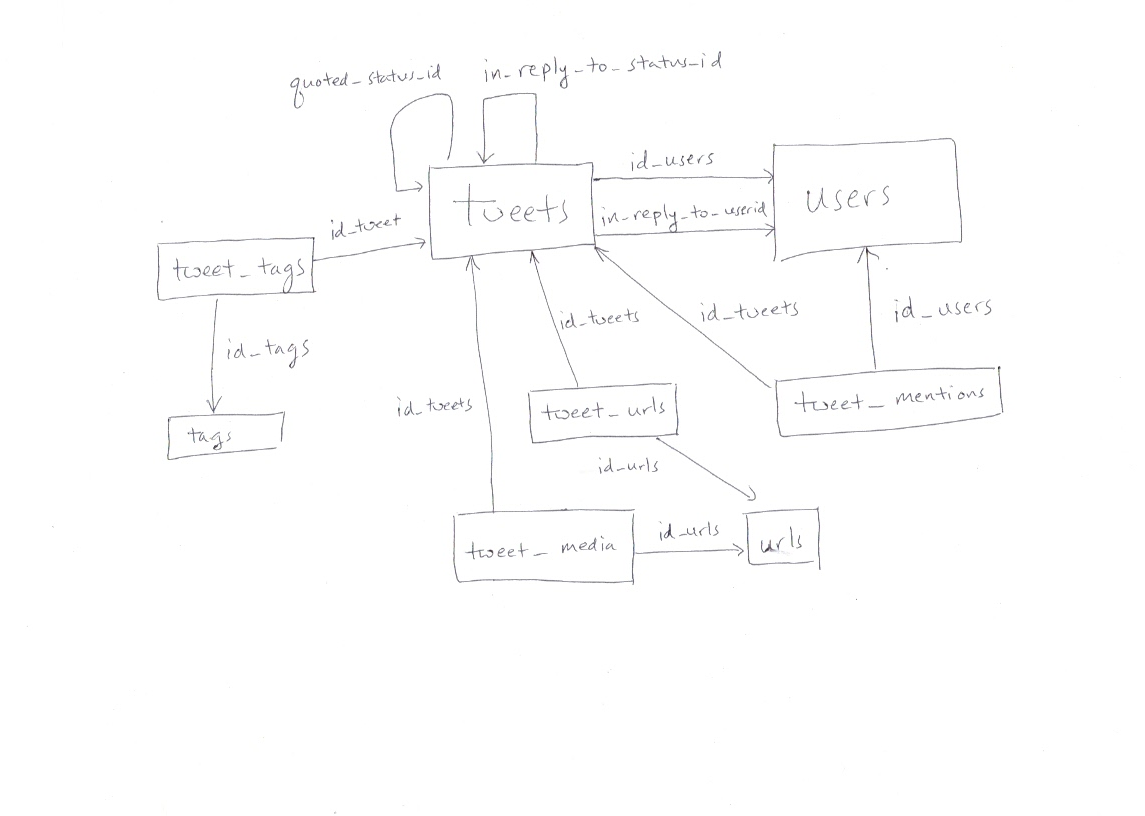 quoted_status_id
in_reply_to_status_id
tweets
id_users
in_reply_to_userid
users
id_tweet
tweet_tags
id_tags
tags
id_tweets
id_tweets
id_tweets
id_users
tweet_urls
tweet_mentions
id_urls
tweet_media
id_urls
urls